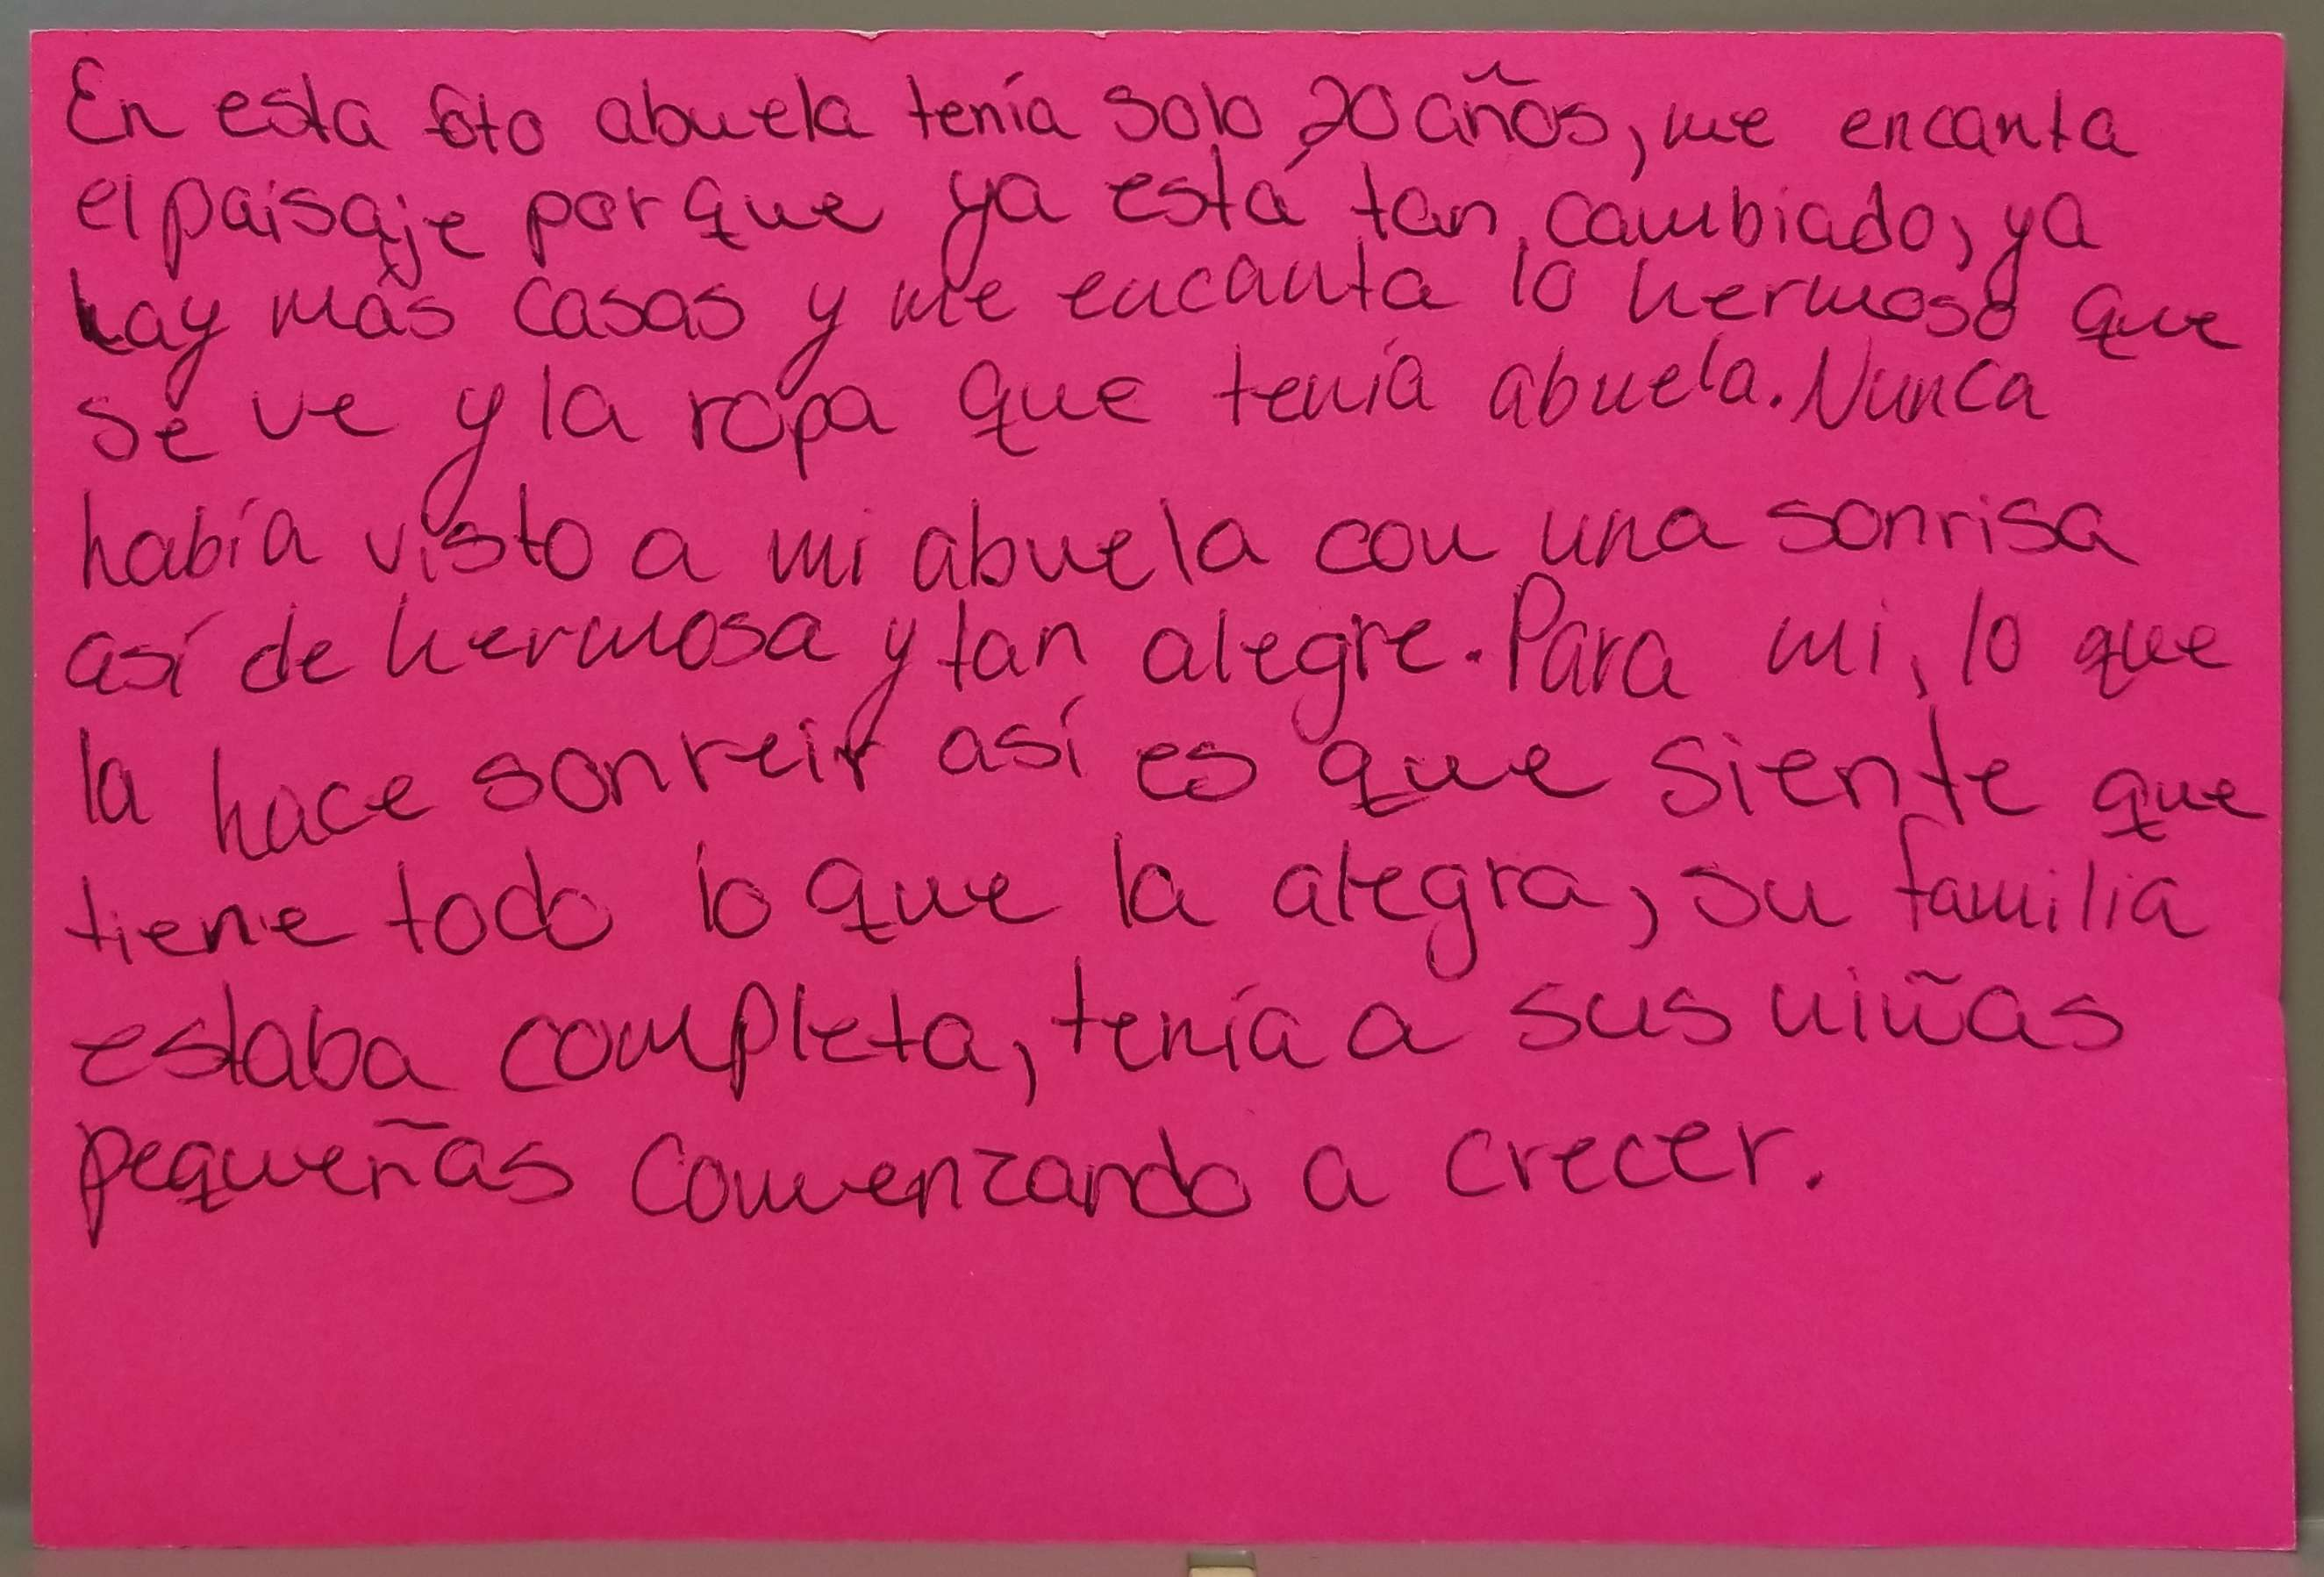 En esta foto abuela tenía solo 20 años, me encanta
el paisaje porque ya está tan cambiado, ya
hay más casas y me encanta lo hermoso que
se ve y la ropa que tenía abuela. Nunca
había visto a mi abuela con una sonrisa
así de hermosa y tan alegre. Para mi, lo que
la hace sonreir así es que siente que
tiene todo lo que la alegra, su familia
estaba completa, tenía a sus niñas
pequeñas comenzando a crecer.